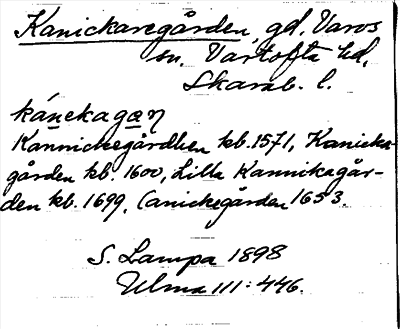 Kanickaregården, gd, Varvs
sn. Vartofta hd,
Skarab. l.
kánekagan
Kannickegårdhen kb. 1571, Kanicka-
gården kb. 1600, Lilla Kannikagår-
den kb. 1699, Canickegården 1653.
S. Lampa 1898
Ulma 111:446.